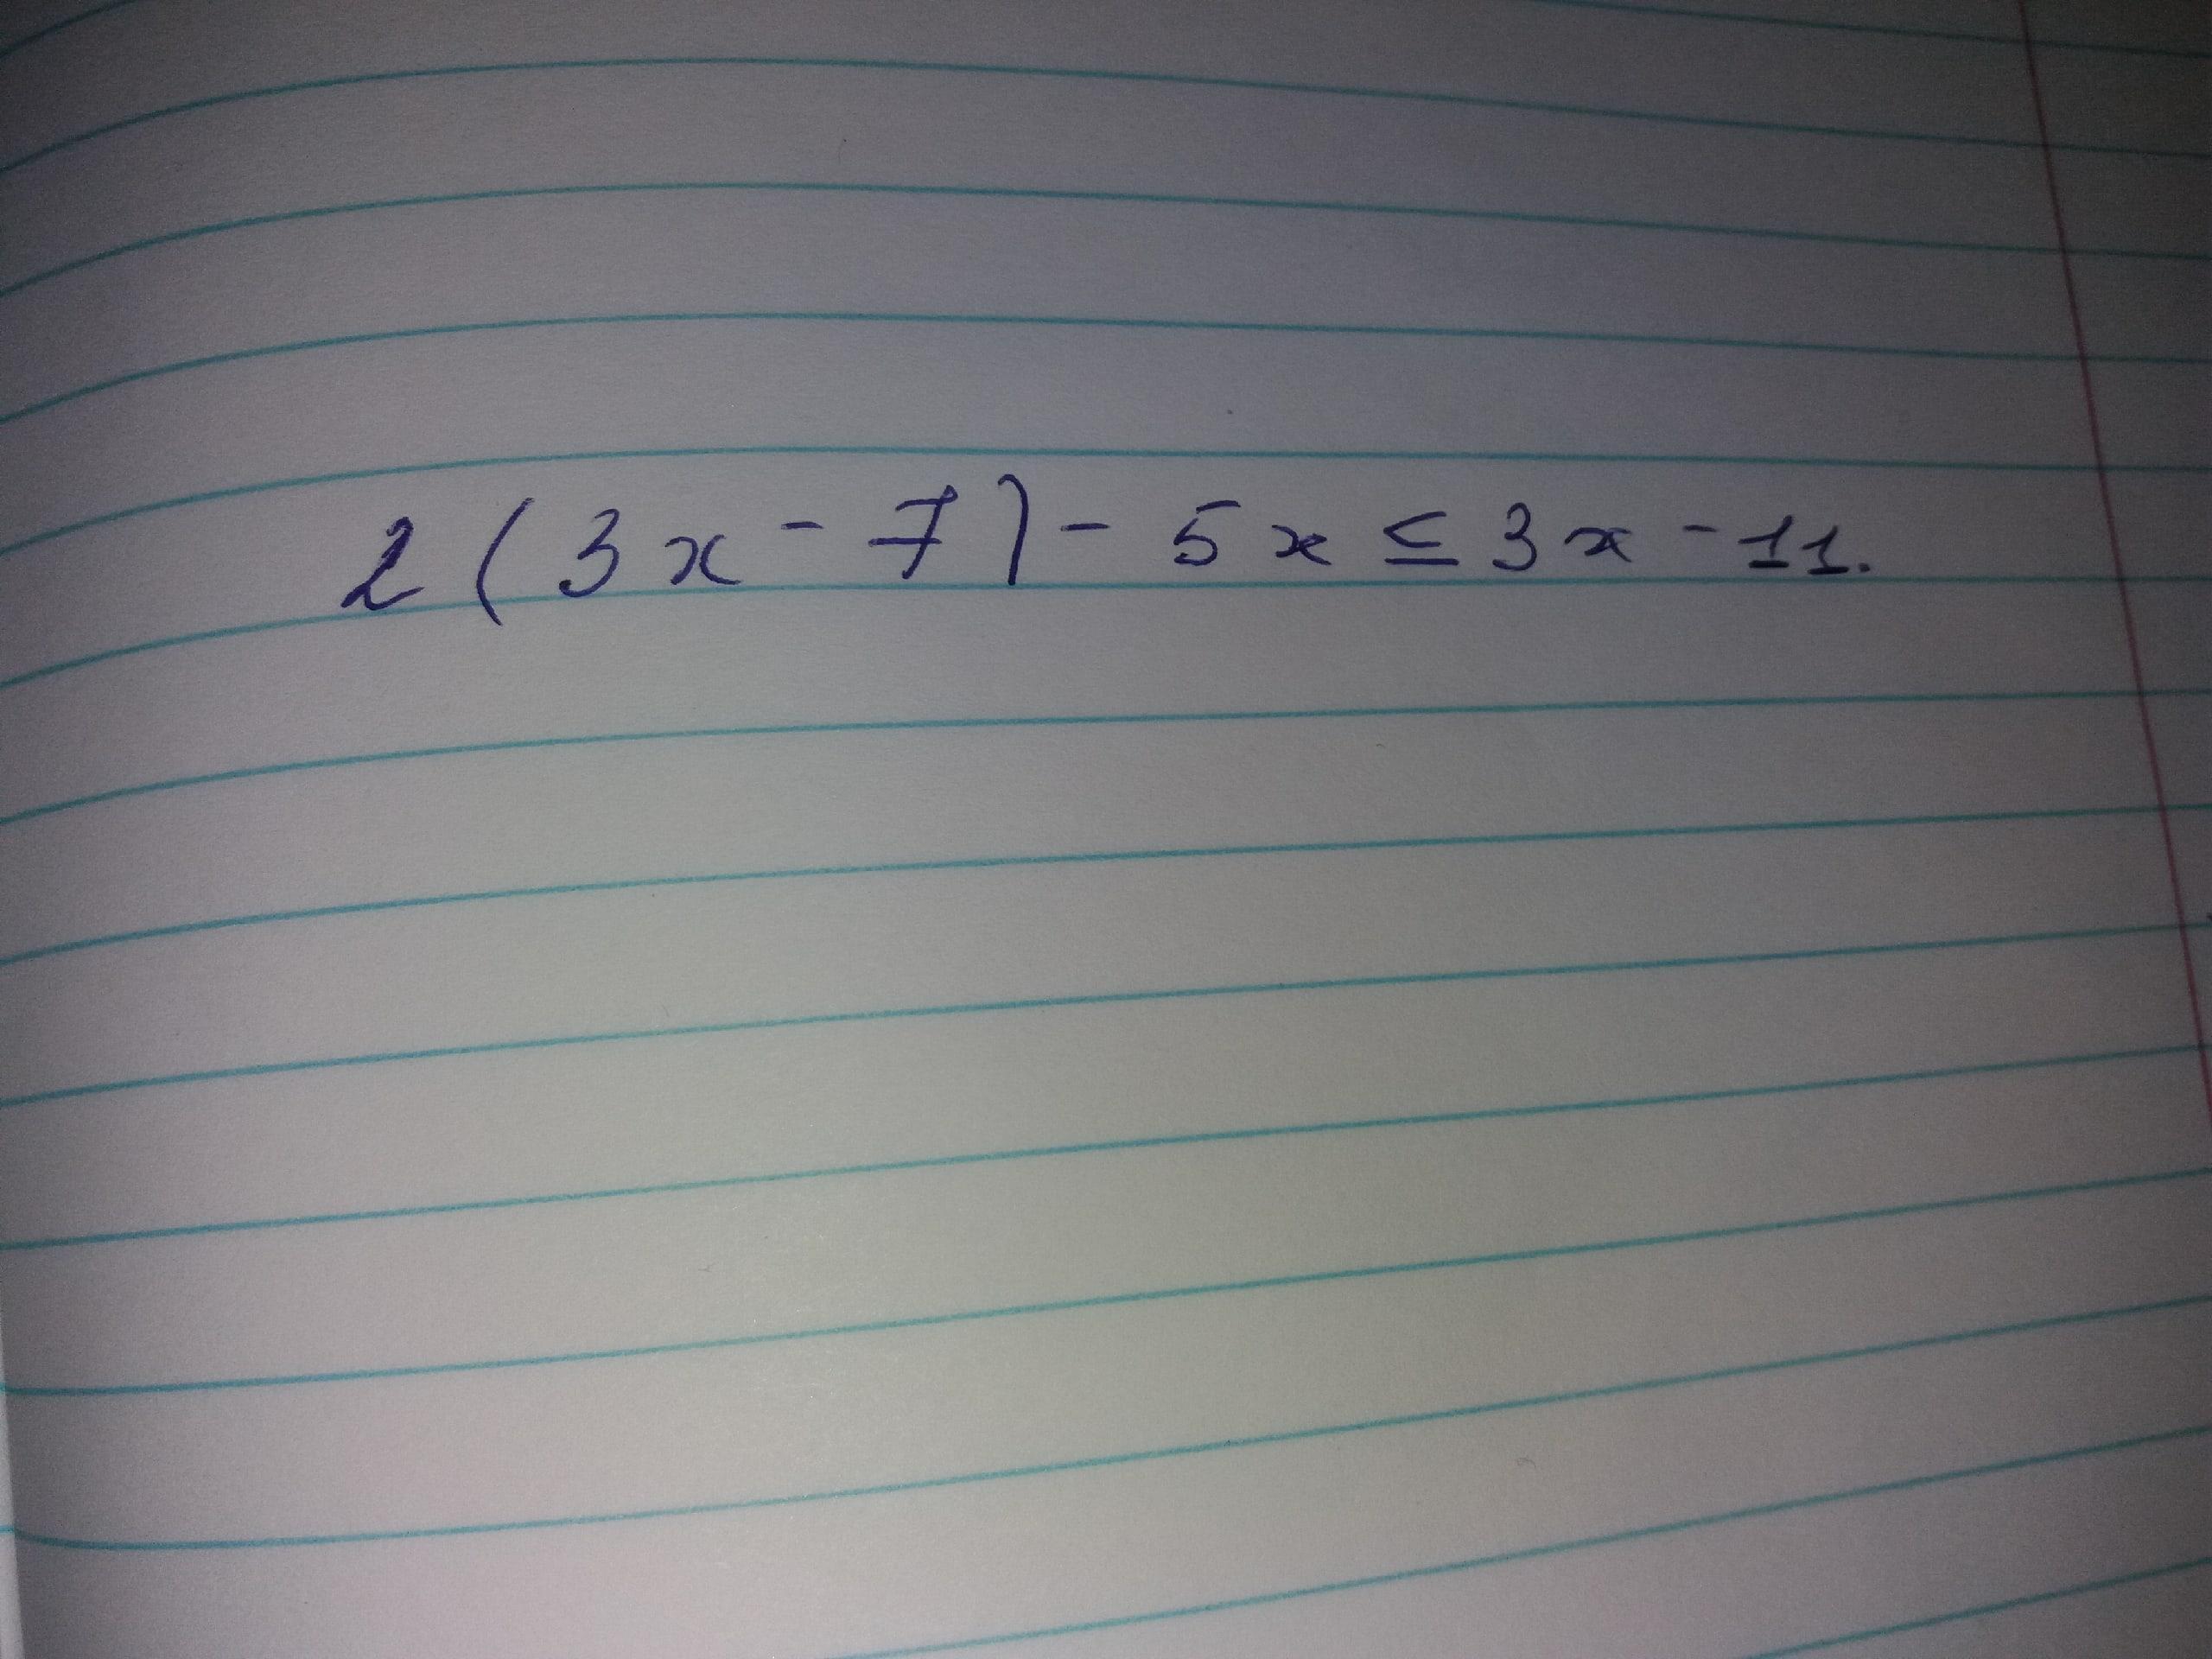 2(3x - 7) - 5x ≤ 3x - 11.